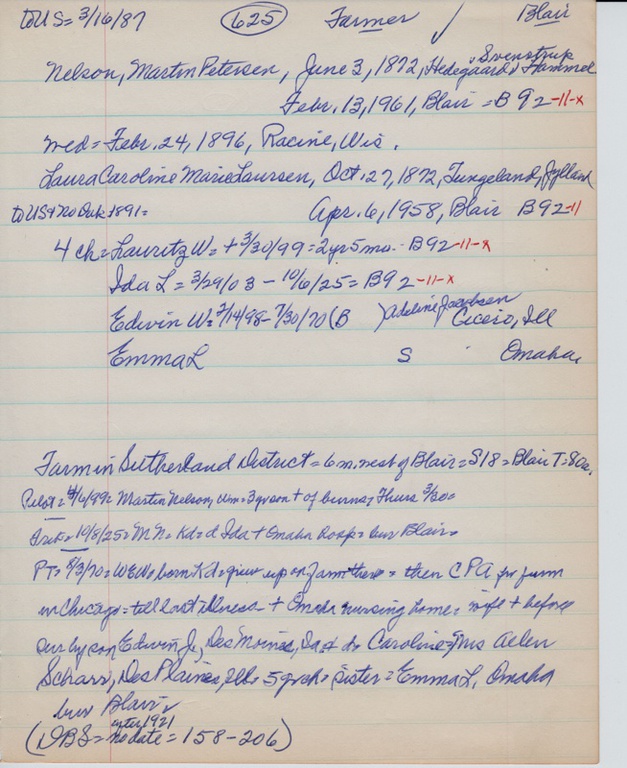 to US = 3/16/87 625 Farmer ✓ Blair
Nelson, Martin Petersen, June 3, 1872, Hedegaard, Svenstrup Hammel
Febr. 13, 1961, Blair = B 92-11-x
Med = Febr. 24, 1896, Racine, Wis.
Laura Caroline Marie Laursen, Oct. 27, 1872, Jylland
to US + No Dak 1891 = Apr. 6, 1958, Blair B92-11
4 ch = Lauritz W = + 3/30/99 = 2 yr 5 mo. - B92-11-x
Ida L = 3/29/03 - 10/6/25 = B92-11-x
Edwin W = 2/14/98 - 7/30/70 (B ) Adeline Jacobsen Cicero, Ill
Emma L S Omaha
Farm in Sutherland District = 6 m. west of Blair = S18 = Blair T = 80a.
Pilot = 4/6/99 = Martin Nelson, 3 yr son + of burns, Thurs 3/30 =
10/8/25 = M N = Kd = d Ida + Omaha = bur Blair =
PT = 8/3/70 = WEW = born Kd = grew up on farm there = then CPA for firm
in Chicago = till last illness + Omaha nursing home = wife + before
sur by son Edwin Jr, Des Moines, Ia + d = Caroline = Mrs Allen
Scharr, Des Plaines, Ill = 5 grch = sister = Emma L, Omaha
bur Blair ✓
(DBS = after 1921 no date = 158-206)